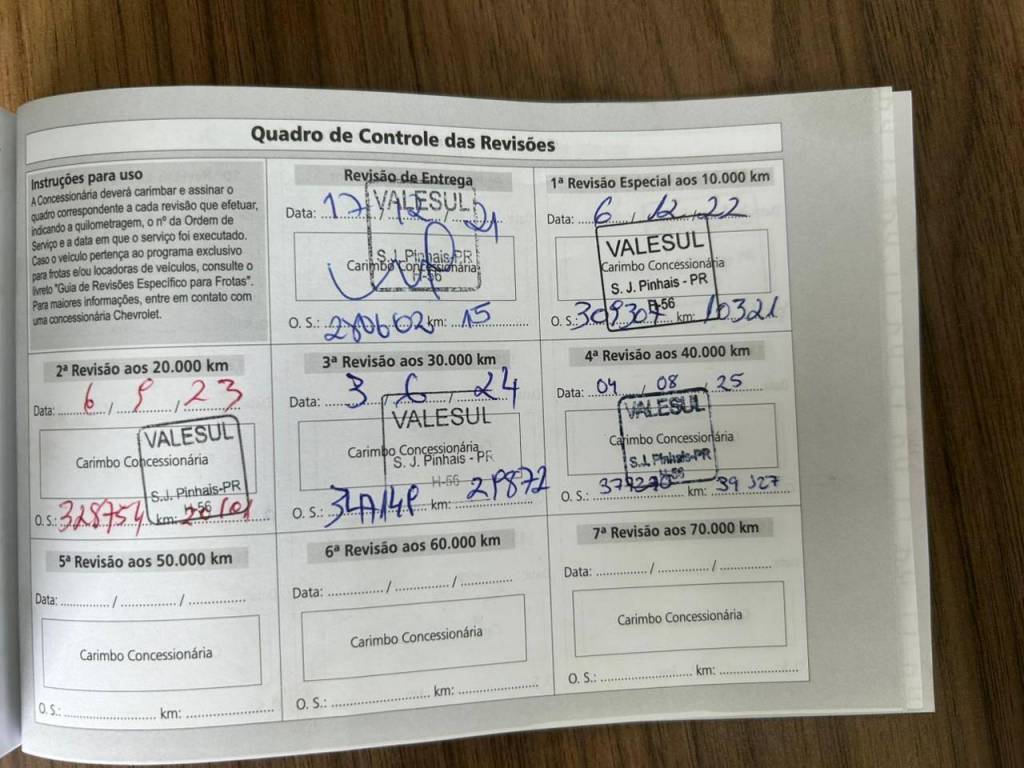 Quadro de Controle das Revisões
Instruções para uso
A Concessionária deverá carimbar e assinar o
quadro correspondente a cada revisão que efetuar,
indicando a quilometragem, o nº da Ordem de
Serviço e a data em que o serviço foi executado.
Caso o veículo pertença ao programa exclusivo
para frotas e/ou locadoras de veículos, consulte o
livreto "Guia de Revisões Específico para Frotas".
Para maiores informações, entre em contato com
uma concessionária Chevrolet.
Revisão de Entrega
Data: 17 / 12 / 21
VALESUL
S. J. Pinhais-PR
Carimbo Concessionária
H-56
O. S.: 280602 km: 15
1ª Revisão Especial aos 10.000 km
Data: 6 / 12 / 22
VALESUL
Carimbo Concessionária
S. J. Pinhais - PR
H-56
O. S.: 309307 km: 10321
2ª Revisão aos 20.000 km
Data: 6 / 9 / 23
VALESUL
Carimbo Concessionária
S.J. Pinhais-PR
H-56
O. S.: 328754 km:
3ª Revisão aos 30.000 km
Data: 3 / 6 / 24
VALESUL
Carimbo Concessionária
S. J. Pinhais - PR
H-56
O. S.: km: 29872
4ª Revisão aos 40.000 km
Data: 04 / 08 / 25
VALESUL
Carimbo Concessionária
S.J. Pinhais-PR
H-56
O. S.: km: 39 527
5ª Revisão aos 50.000 km
Data: ............ / ............ / ............
Carimbo Concessionária
O. S.: ............ km: ............
6ª Revisão aos 60.000 km
Data: ............ / ............ / ............
Carimbo Concessionária
O. S.: ............ km: ............
7ª Revisão aos 70.000 km
Data: ............ / ............ / ............
Carimbo Concessionária
O. S.: ............ km: ............